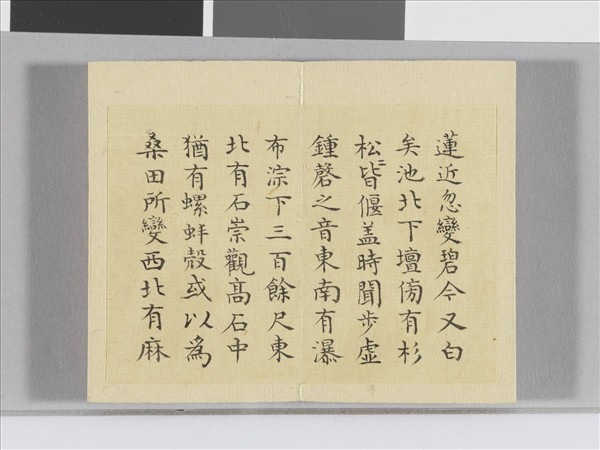 蓮近忽變碧今又白
矣池北下壇傍有杉
松〻皆偃盖時聞步虛
鍾磬之音東南有瀑
布淙下三百餘尺東
北有石崇觀髙石中
猶有螺蚌殼或以爲
桑田所變西北有麻